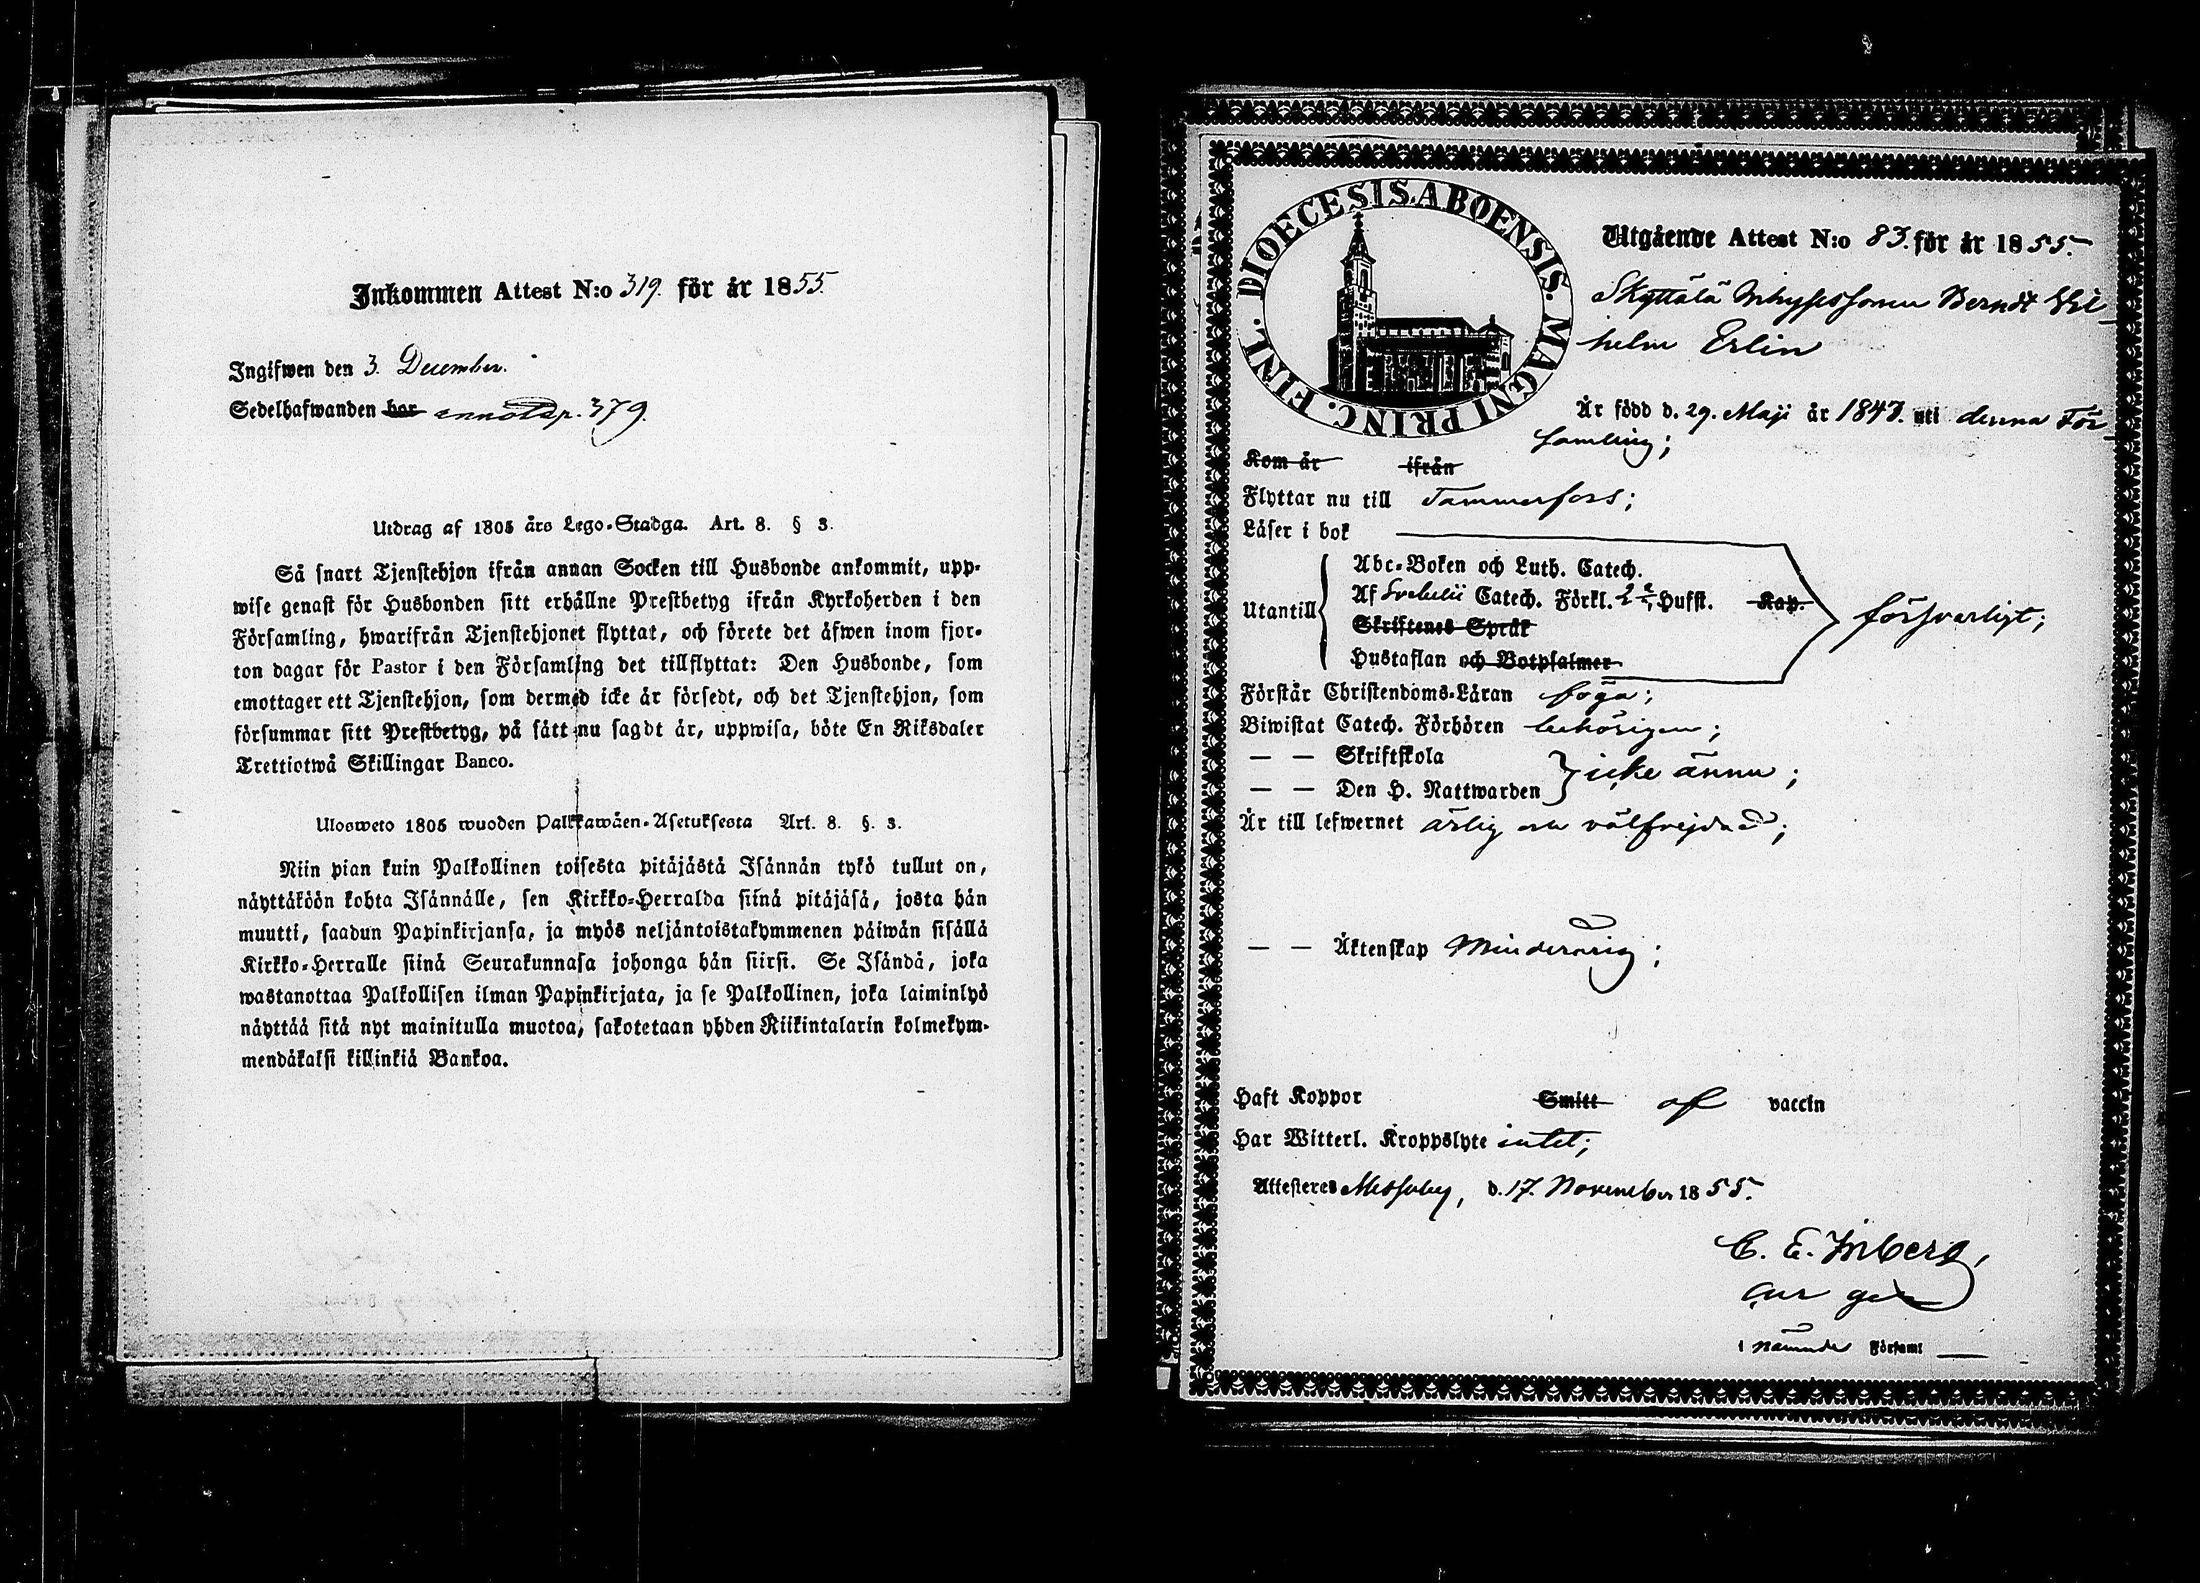 Inkommen Attest N:o 319. för år 1855.
Ingifwen den 3. December.
Sedelhafwanden har annot. p. 379.
Utdrag af 1805 års Lego-Stadga. Art. 8. § 3.
Så snart Tjenstehjon ifrån annan Socken till Husbonde ankommit, upp-
wise genast för Husbonden sitt erhållne Prestbetyg ifrån Kyrkoherden i den
Församling, hwarifrån Tjenstehjonet flyttat, och förete det äfwen inom fjor-
ton dagar för Pastor i den Församling det tillflyttat: Den Husbonde, som
emottager ett Tjenstehjon, som dermed icke är försedt, och det Tjenstehjon, som
försummar sitt Prestbetyg, på sätt nu sagdt är, uppwisa, böte En Riksdaler
Trettiotwå Skillingar Banco.
Ulosweto 1805 wuoden Palkkawäen-Asetuksesta Art. 8. §. 3.
Niin pian kuin Palkollinen toisesta pitäjästä Isännän tykö tullut on,
näyttäköön kohta Isännälle, sen Kirkko-Herralda siinä pitäjäsä, josta hän
muutti, saadun Papinkirjansa, ja myös neljäntoistakymmenen päiwän sisällä
Kirkko-Herralle siinä Seurakunnasa johonga hän siirsi. Se Isändä, joka
wastanottaa Palkollisen ilman Papinkirjata, ja se Palkollinen, joka laiminlyö
näyttää sitä nyt mainitulla muotoa, sakotetaan yhden Riikintalarin kolmekym-
mendäkaksi killinkiä Bankoa.
DIOECESIS. ABOENSIS. MAGNI PRINC. FINL.
Utgående Attest N:o 83. för år 1855.
Skyttälä Inhysessonen Berndt Wil-
helm Erlin
Är född d. 29. Maji år 1847. uti denna För-
samling;
Kom år ifrån
Flyttar nu till Tammerfors;
Läser i bok
Utantill
Abc-Boken och Luth. Catech.
Af Svebelii Catech. Förkl. 2 Hufst. Kap.
Skriftenes Språk
Hustaflan och Botpsalmer
försvarligt;
Förstår Christendoms-Läran föga;
Biwistat Catech. Förhören behörigen;
— — Skriftskola
— — Den H. Nattwarden
icke ännu;
Är till lefwernet ärlig och välfrejdad;
— — Äktenskap Minderårig;
Haft Koppor Smitt af vaccin
Har Witterl. Kroppslyte intet;
Attesteres Messuby, d. 17. November 1855.
C. E. Inberg,
i nämnde Församl